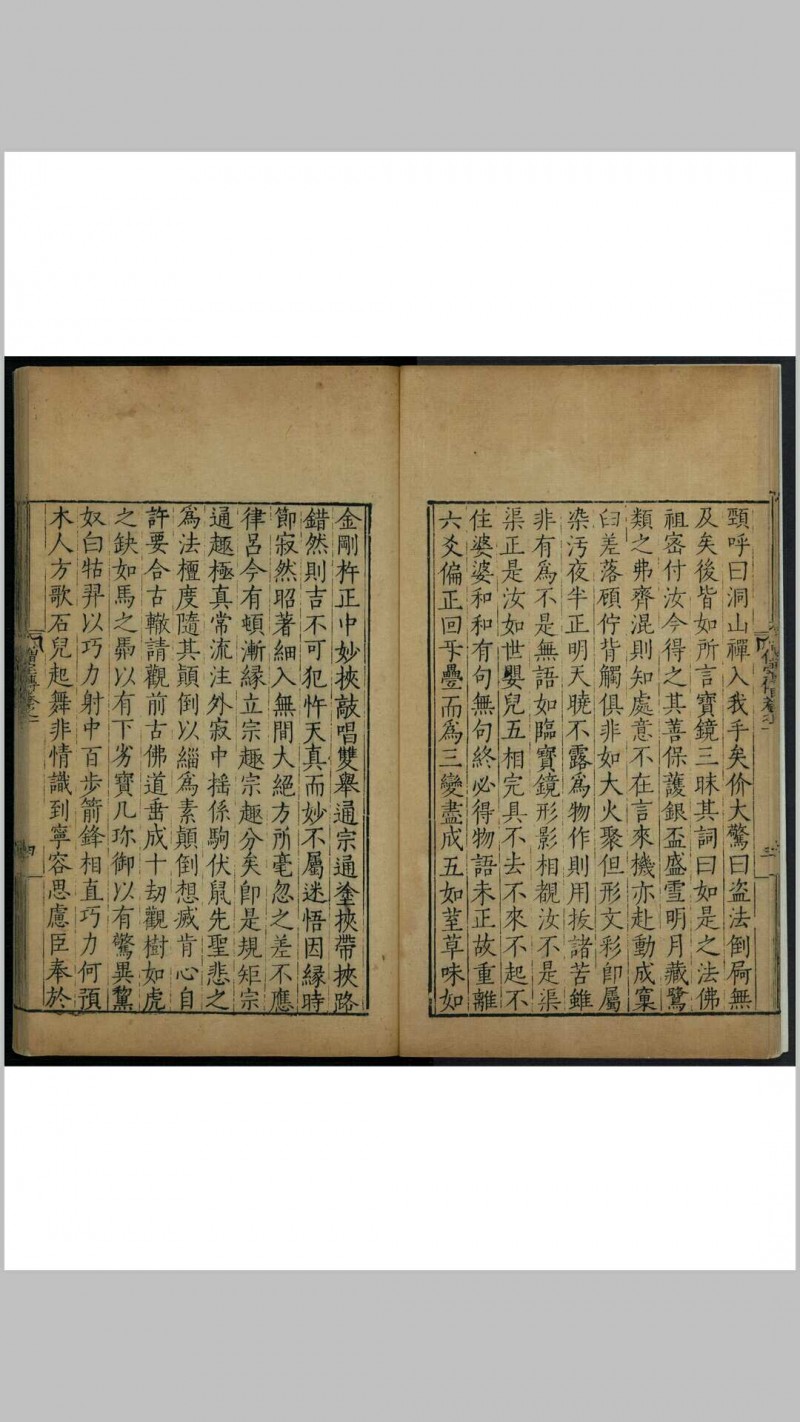 頸呼曰洞山禪入我手矣价大驚曰盗法倒屙無
及矣後皆如所言寶鏡三昧其詞曰如是之法佛
祖密付汝今得之其善保護銀盃盛雪明月藏鷺
類之弗齊混則知處意不在言來機亦赴動成窠
臼差落碩佇背觸俱非如大火聚但形文彩即屬
染汚夜半正明天曉不露為物作則用抜諸苦雖
非有為不是無語如臨寶鏡形影相覩汝不是渠
渠正是汝如世嬰兒五相完具不去不來不起不
住婆婆和和有句無句終必得物語未正故重離
六爻偏正回㸦疊而為三變盡成五如荎草味如
金剛杵正中妙挾敲唱雙舉通宗通塗挾帶挾路
錯然則吉不可犯忤天真而妙不屬迷悟因縁時
節寂然昭著細入無間大絕方所毫忽之差不應
律呂今有頓漸縁立宗趣宗趣分矣即是規矩宗
通趣極真常流注外寂中搖係駒伏鼠先聖悲之
為法檀度隨其顛倒以緇為素顛倒想滅肯心自
許要合古轍請觀前古佛道垂成十劫觀樹如虎
之缺如馬之馵以有下劣寶几珎御以有驚異黧
奴白牯羿以巧力射中百歩箭鋒相直巧力何預
木人方歌石兒起舞非情識到寧容思慮臣奉於